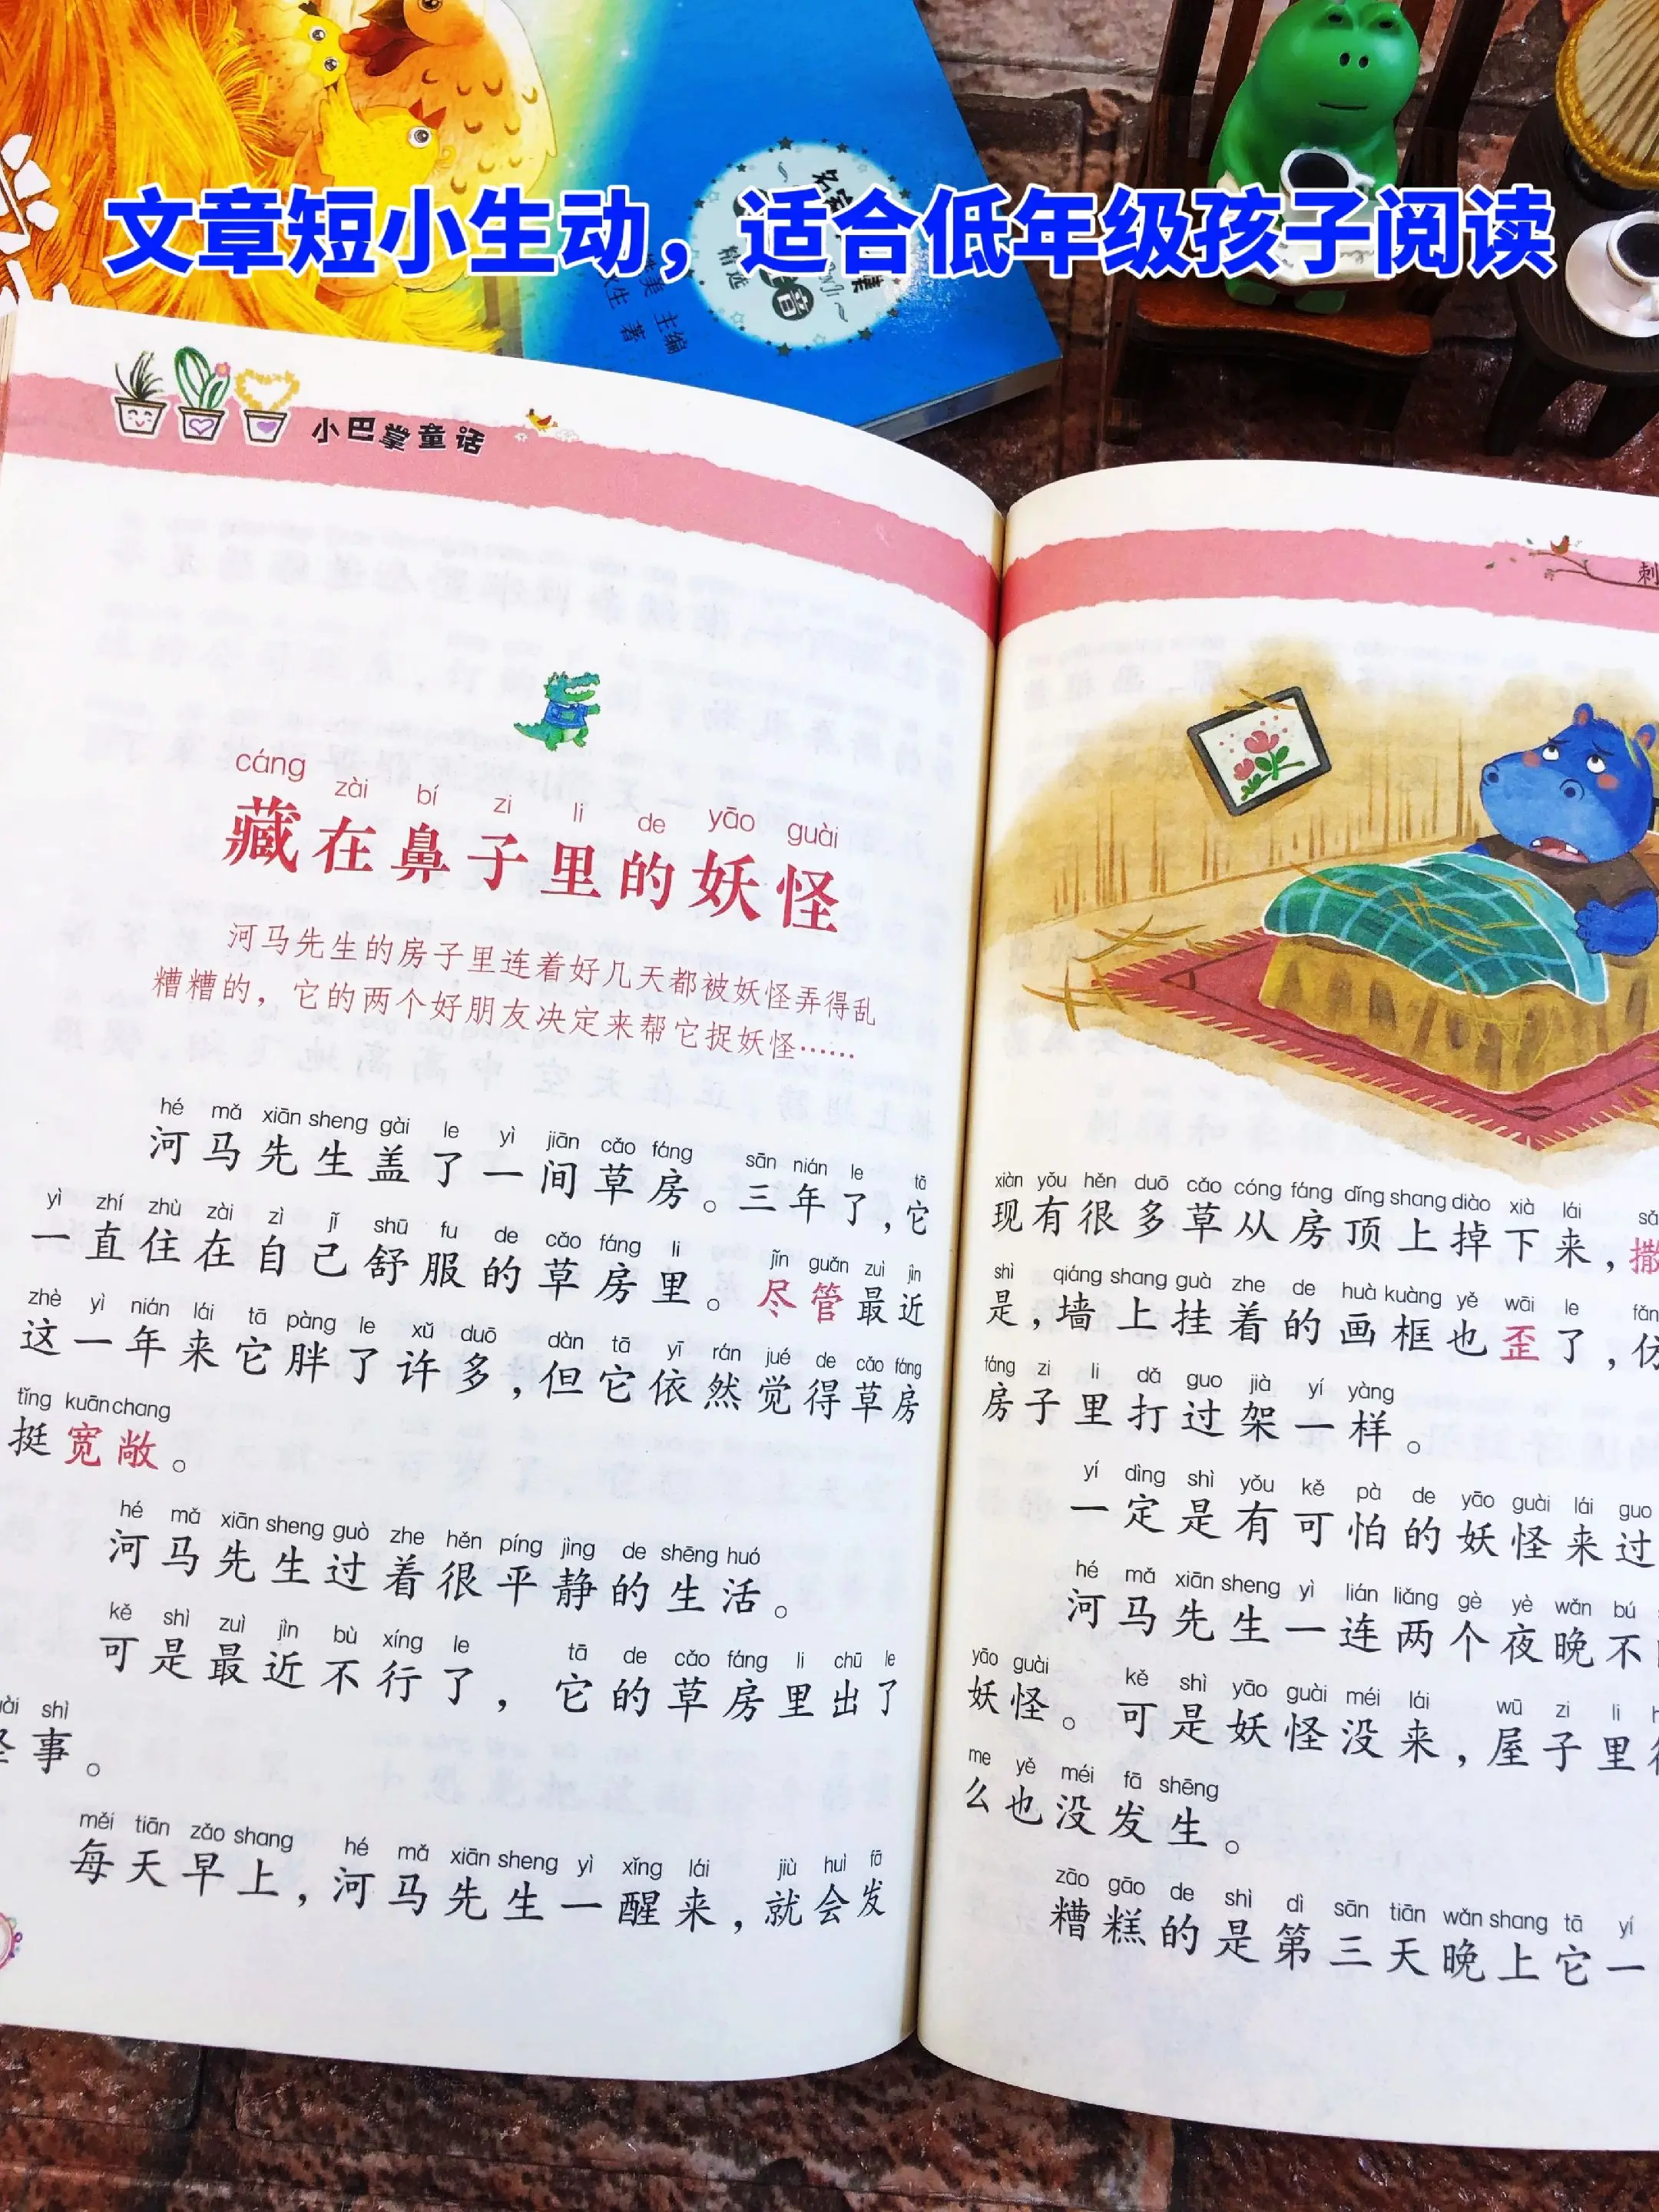 文章短小生动，适合低年级孩子阅读
精选
主编
著
小巴掌童话
cáng zài bí zi li de yāo guài
藏在鼻子里的妖怪
河马先生的房子里连着好几天都被妖怪弄得乱
糟糟的，它的两个好朋友决定来帮它捉妖怪……
hé mǎ xiān sheng gài le yì jiān cǎo fáng sān nián le tā
河马先生盖了一间草房。三年了，它
yì zhí zhù zài zì jǐ shū fu de cǎo fáng li jǐn guǎn zuì jìn
一直住在自己舒服的草房里。尽管最近
zhè yì nián lái tā pàng le xǔ duō dàn tā yī rán jué de cǎo fáng
这一年来它胖了许多，但它依然觉得草房
tǐng kuān chang
挺宽敞。
hé mǎ xiān sheng guò zhe hěn píng jìng de shēng huó
河马先生过着很平静的生活。
kě shì zuì jìn bù xíng le tā de cǎo fáng li chū le
可是最近不行了，它的草房里出了
shì
事。
měi tiān zǎo shang hé mǎ xiān sheng yì xǐng lái jiù huì fā
每天早上，河马先生一醒来，就会发
刺
xiàn yǒu hěn duō cǎo cóng fáng dǐng shang diào xià lái
现有很多草从房顶上掉下来，撒
shì qiáng shang guà zhe de huà kuàng yě wāi le
是，墙上挂着的画框也歪了，仿
fáng zi li dǎ guo jià yí yàng
房子里打过架一样。
yí dìng shì yǒu kě pà de yāo guài lái guo
一定是有可怕的妖怪来过
hé mǎ xiān sheng yì lián liǎng gè yè wǎn bú
河马先生一连两个夜晚不
yāo guài kě shì yāo guài méi lái wū zi li
妖怪。可是妖怪没来，屋子里
me yě méi fā shēng
么也没发生。
zāo gāo de shì dì sān tiān wǎn shang tā yí
糟糕的是第三天晚上它一